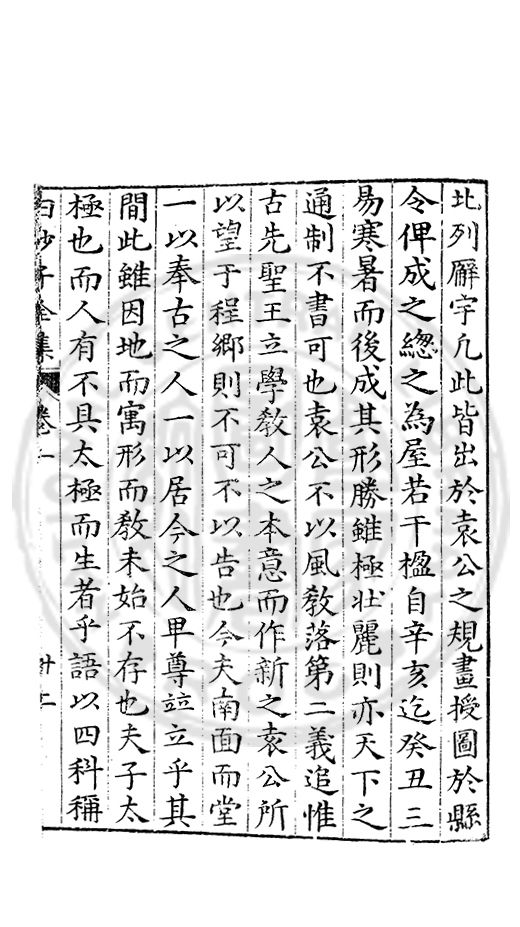 北列廨宇凢此皆出於袁公之規畫授圖於縣
令俾成之緫之為屋若干楹自辛亥迄癸丑三
易寒暑而後成其形勝雖極壯麗則亦天下之
通制不書可也袁公不以風敎落第二義追惟
古先聖王立學敎人之本意而作新之袁公所
以望于程鄉則不可不以告也今夫南面而堂
一以奉古之人一以居今之人甲尊竝立乎其
間此雖因地而寓形而敎未始不存也夫子太
極也而人有不具太極而生者乎語以四科稱
白沙子全集 卷之一 廿二